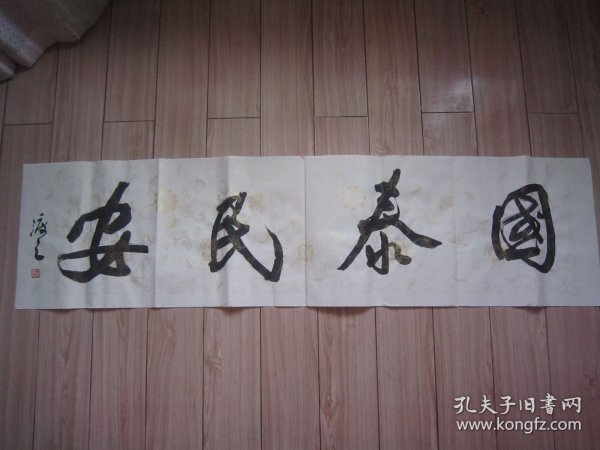 國泰民安
孔夫子旧書网
www.kongfz.com